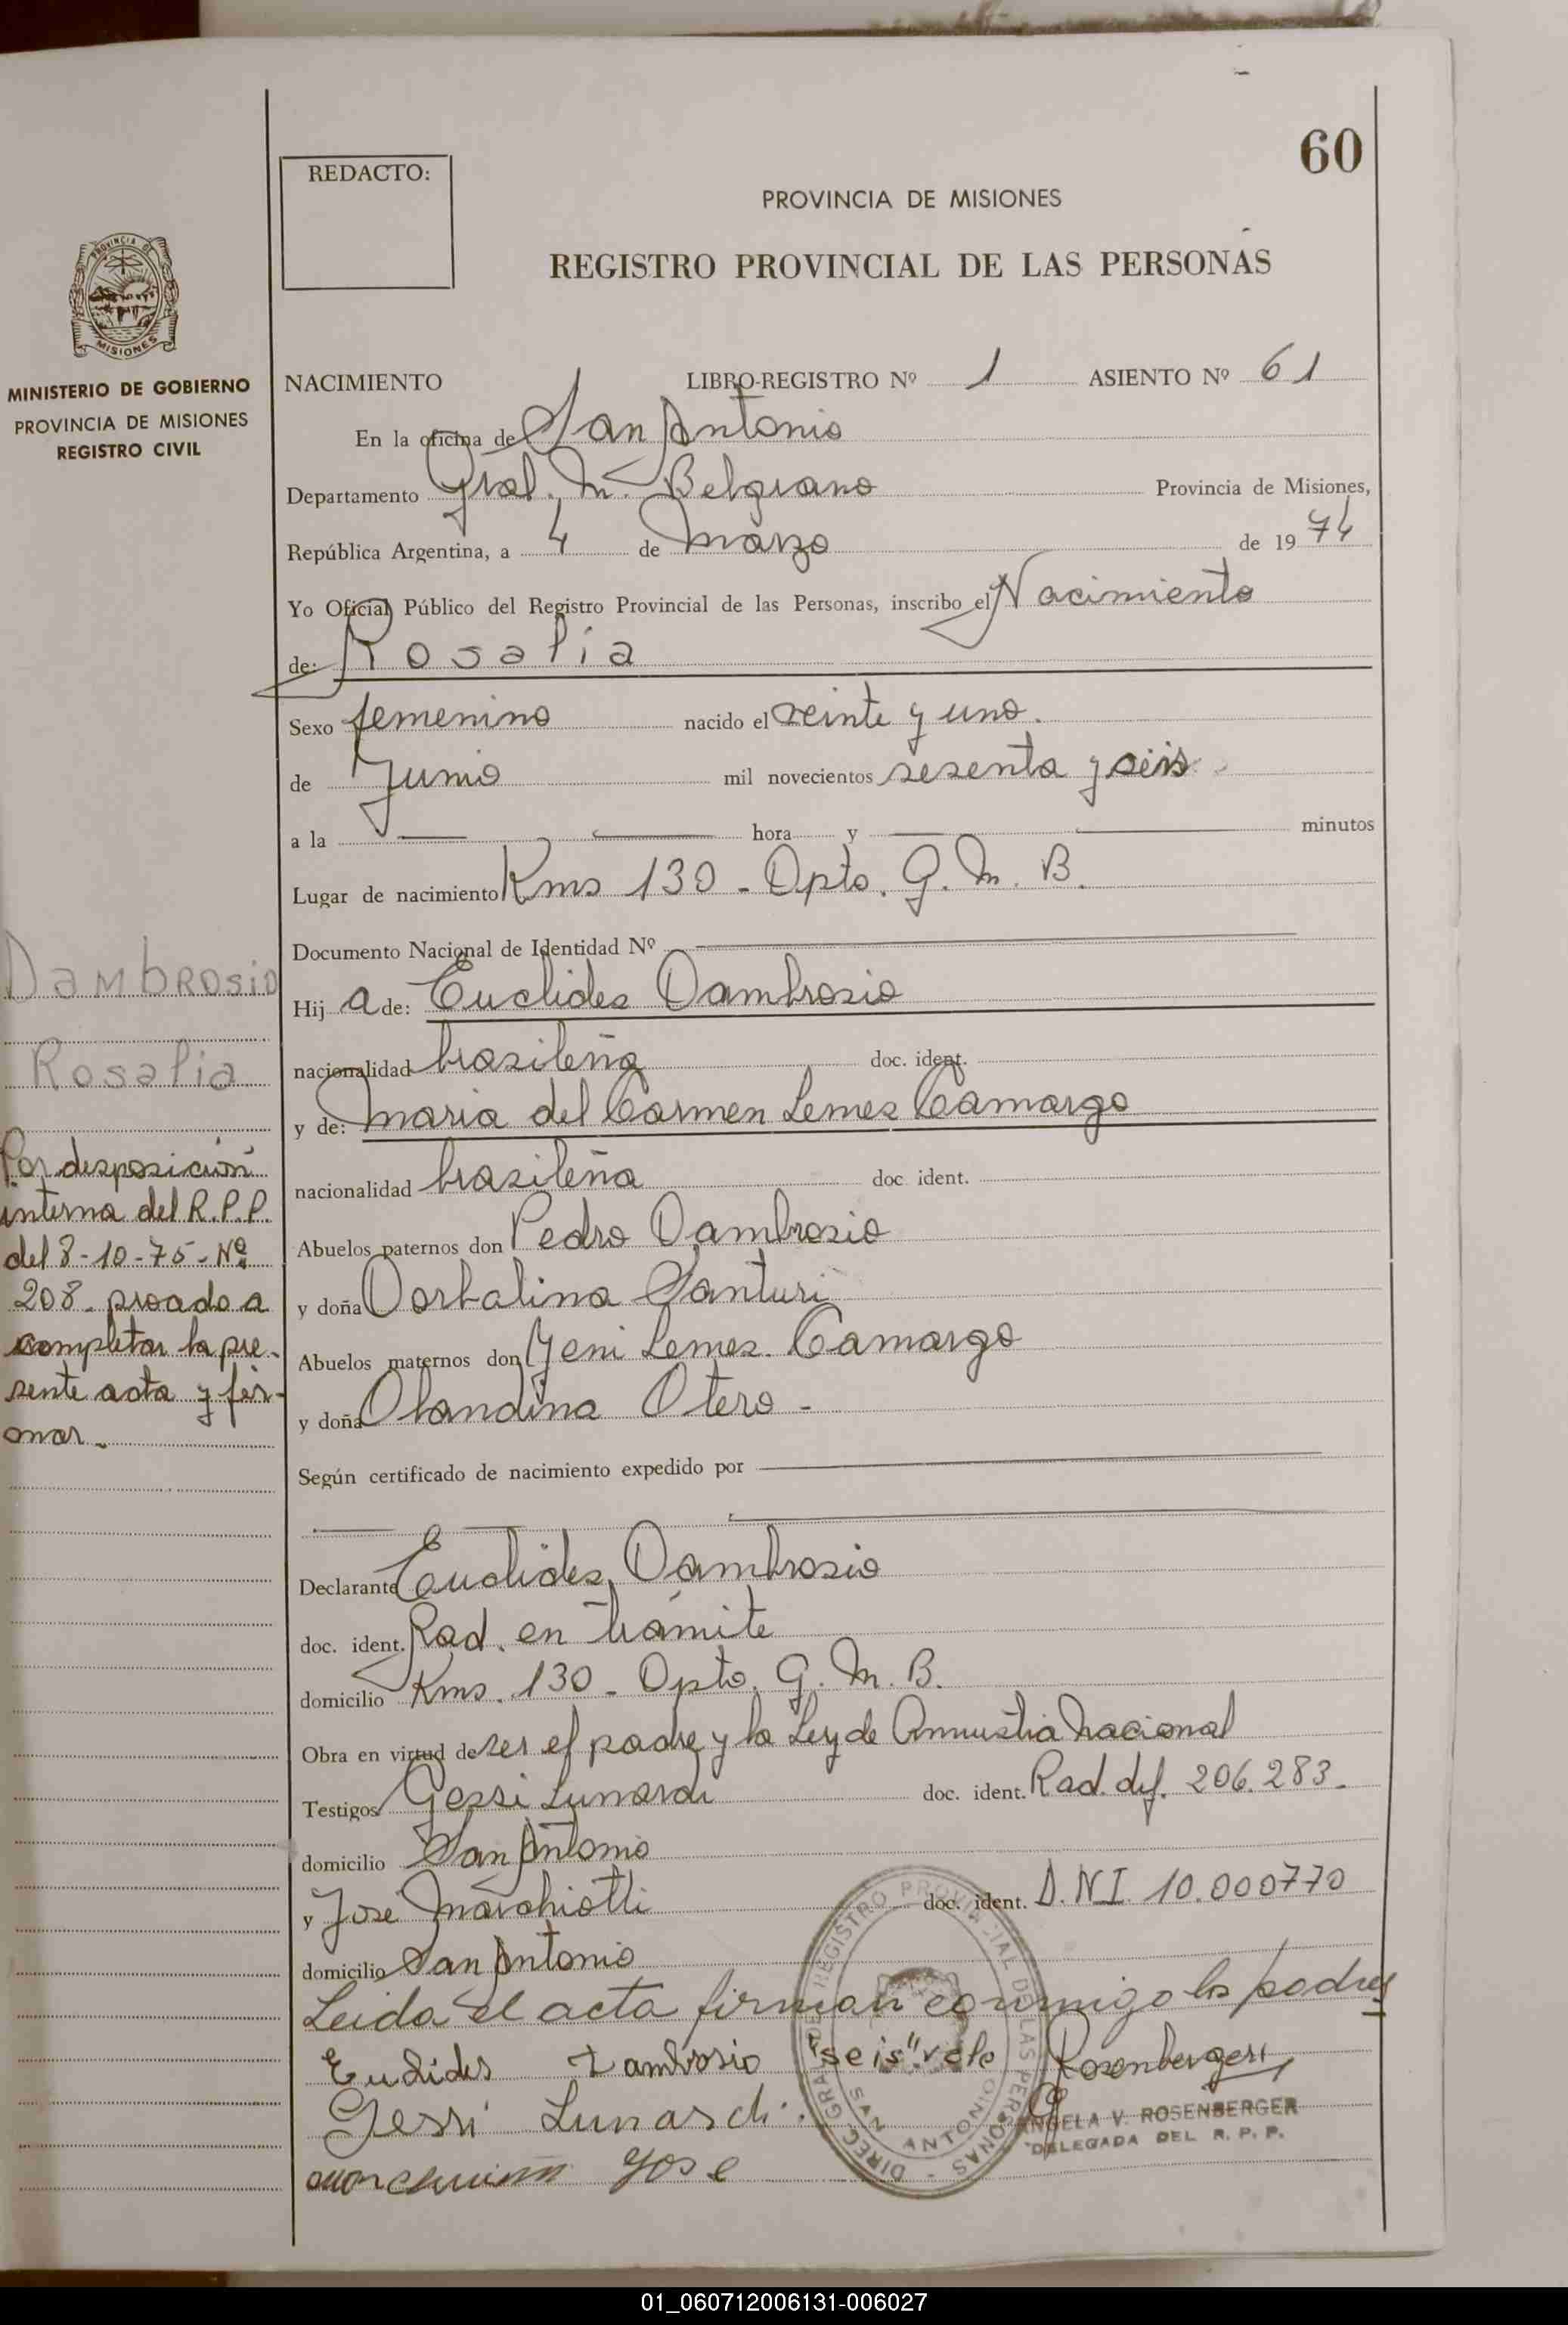 60
REDACTO:
PROVINCIA DE MISIONES
REGISTRO PROVINCIAL DE LAS PERSONAS
PROVINCIA DE
MISIONES
MINISTERIO DE GOBIERNO
PROVINCIA DE MISIONES
REGISTRO CIVIL
NACIMIENTO LIBRO-REGISTRO Nº 1 ASIENTO Nº 61
En la oficina de San Antonio
Departamento Gral. M. Belgrano Provincia de Misiones,
República Argentina, a 4 de Marzo de 1974
Yo Oficial Público del Registro Provincial de las Personas, inscribo el Nacimiento
de: Rosalia
Sexo femenino nacido el veinte y uno.
de Junio mil novecientos sesenta y seis
a la hora y minutos
Lugar de nacimiento Kms 130 - Dpto. G. M. B.
Documento Nacional de Identidad Nº
Hij a de: Euclides Dambrosio
nacionalidad brasileña doc. ident.
y de: Maria del Carmen Lemes Camargo
nacionalidad brasileña doc ident.
Abuelos paternos don Pedro Dambrosio
y doña Dorbalina Santuri
Abuelos maternos don Yeni Lemes Camargo
y doña Olandina Otero -
Según certificado de nacimiento expedido por
Declarante Euclides Dambrosio
doc. ident. Rad. en trámite
domicilio Kms. 130 - Dpto. G. M. B.
Obra en virtud de ser el padre y la Ley de Amnistia Nacional
Testigos Gessi Lunardi doc. ident. Rad. def. 206.283.
domicilio San Antonio
y José Marchiotti doc. ident. D.N.I. 10.000770
domicilio San Antonio
Leida el acta firman conmigo los padres
Euclides Dambrosio "seis" vale Rosenberger
Gessi Lunardi
Jose
ANGELA V. ROSENBERGER
DELEGADA DEL R. P. P.
DIREC. GRAL. DE REGISTRO PROVINCIAL DE LAS PERSONAS -
SAN ANTONIO
Dambrosio
Rosalia
Por desposicion
interna del R.P.P.
del 8-10-75-Nº
208- proado a
completar la pre-
sente acta y fir-
mar-
01_060712006131-006027